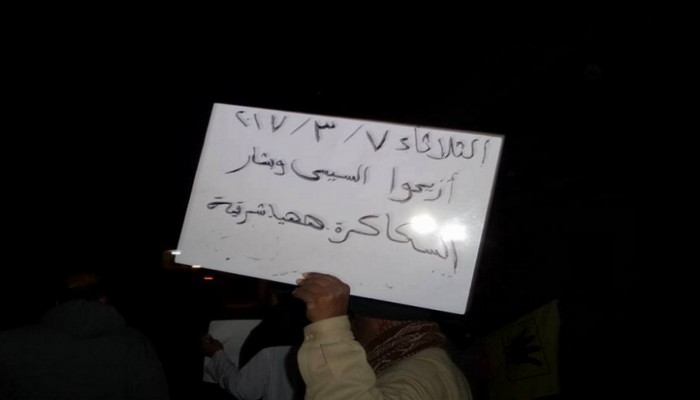 الثلاثاء ٧/٣/٢٠١٧
أزيحوا السيسى وبشار
السكاكرة. ههيا شرقية